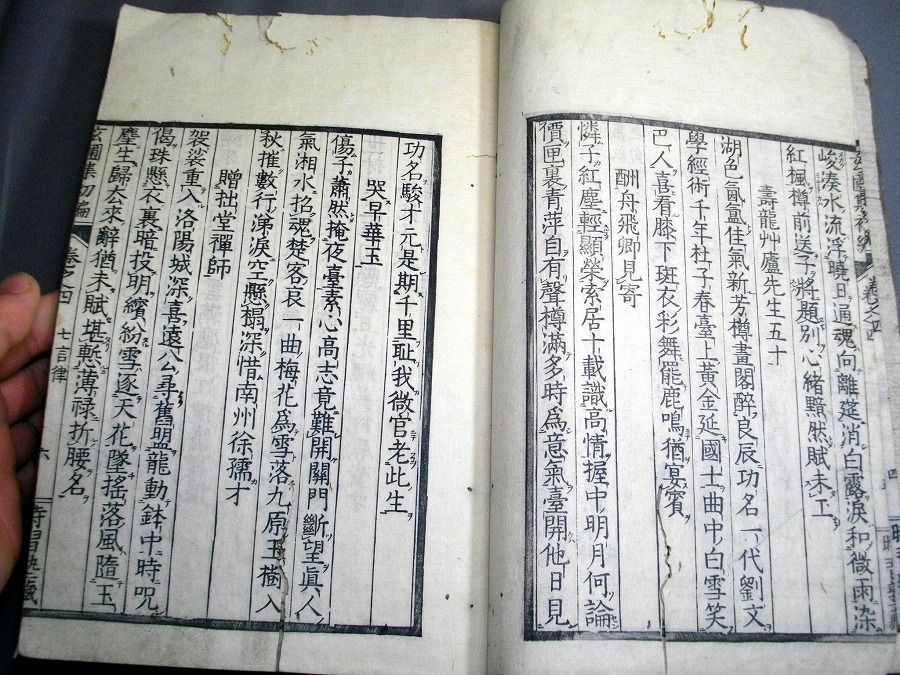 峻湊水流浮曉日通魂向離筵消白露淚和微雨染
紅楓樽前送子將題別心緒黯然賦未工
壽龍艸廬先生五十
湖色氤氳佳氣新芳樽畫閣醉良辰功名一代劉文
學經術千年杜子春臺上黃金延國士曲中白雪笑
巴人喜看膝下斑衣彩舞罷鹿鳴猶宴賓
酬舟飛卿見寄
憐子紅塵輕顯榮索居十載識高情握中明月何論
價匣裏青萍自有聲樽滿多時為意氣臺開他日見
功名駿才元是期千里耻我微官老此生
哭早華玉
傷子蕭然掩夜臺素心高志竟難開關門斷望真人
氣湘水招魂楚客哀一曲梅花為雪落九原玉樹入
秋摧數行涕淚空懸榻深惜南州徐孺才
贈拙堂禪師
袈裟重入洛陽城深喜遠公尋舊盟龍動鉢中時呪
偈珠懸衣裏暗投明繽紛雪逐天花墜搖落風隨玉
麈生歸去來辭猶未賦堪慙薄祿折腰名
玄圃集初編 卷之四 七言律 六 時習塾藏